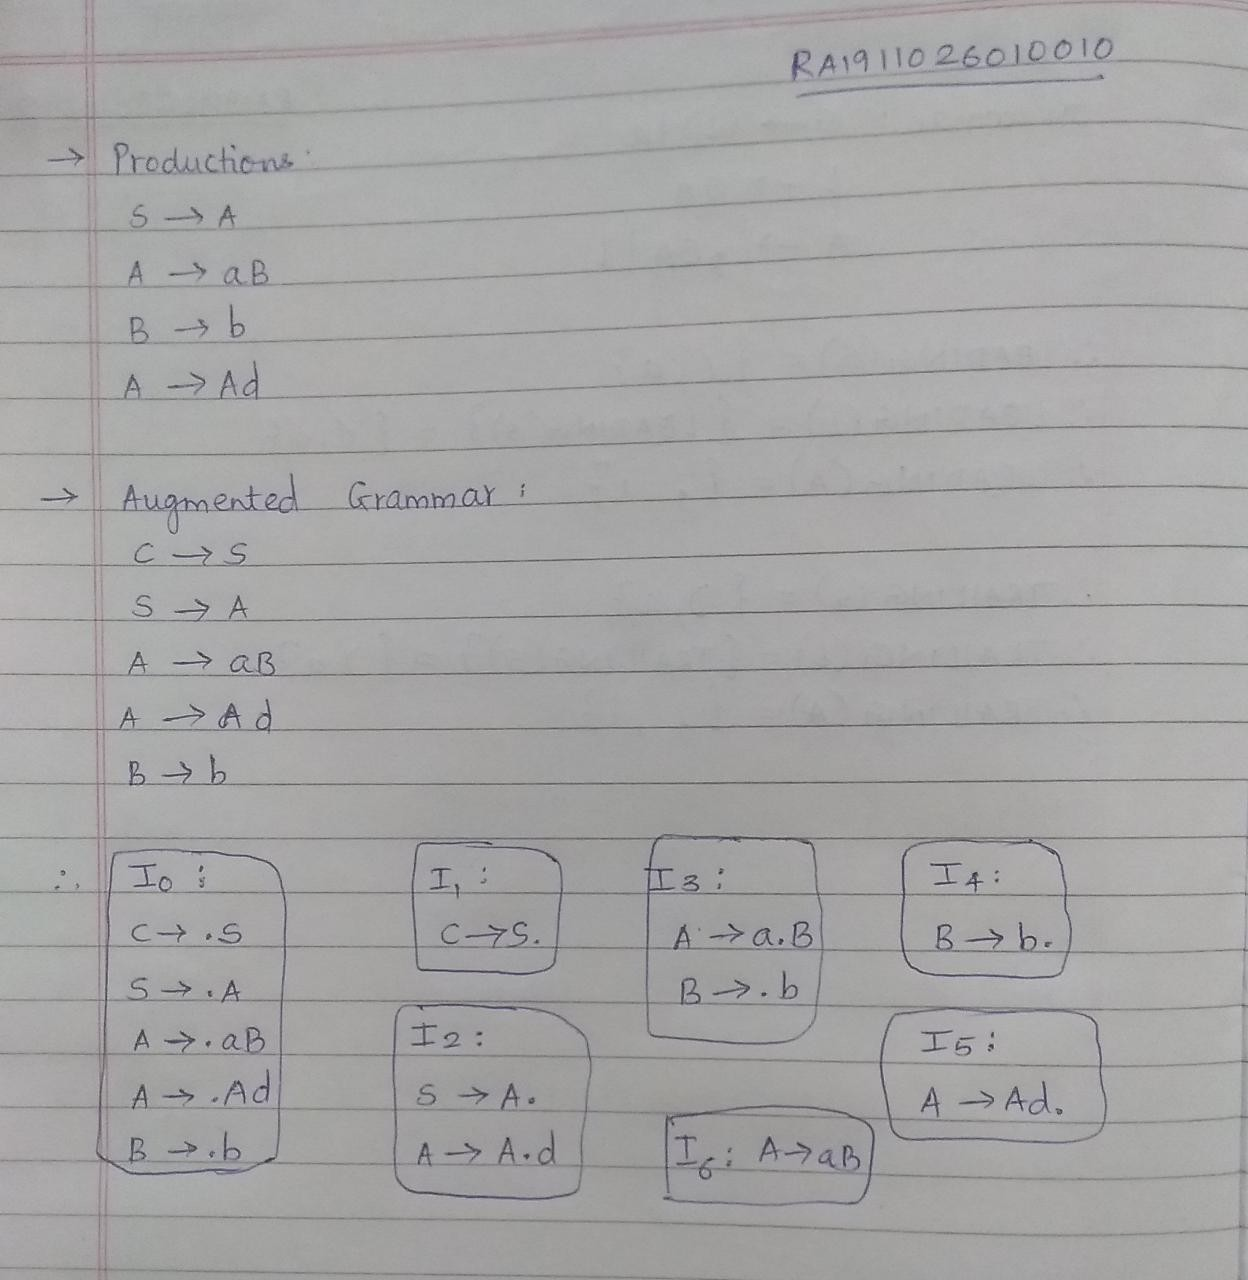 RA1911026010010
→ Productions:
S → A
A → aB
B → b
A → Ad
→ Augmented Grammar :
C → S
S → A
A → aB
A → Ad
B → b
∴ I0 :
C → .S
S → .A
A → .aB
A → .Ad
B → .b
I1 :
C → S.
I2 :
S → A.
A → A.d
I3 :
A → a.B
B → .b
I4 :
B → b.
I5 :
A → Ad.
I6 : A → aB